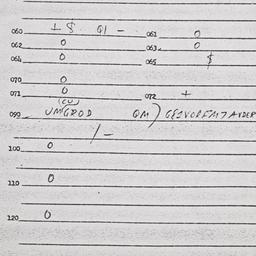 060 ⊥ $ 01 – 061 0
062 0 063 0
064 0 065 $
070 0
071 0 072 +
(CU)
099 UMGROD QM)
/ –
100 0
110 0
120 0